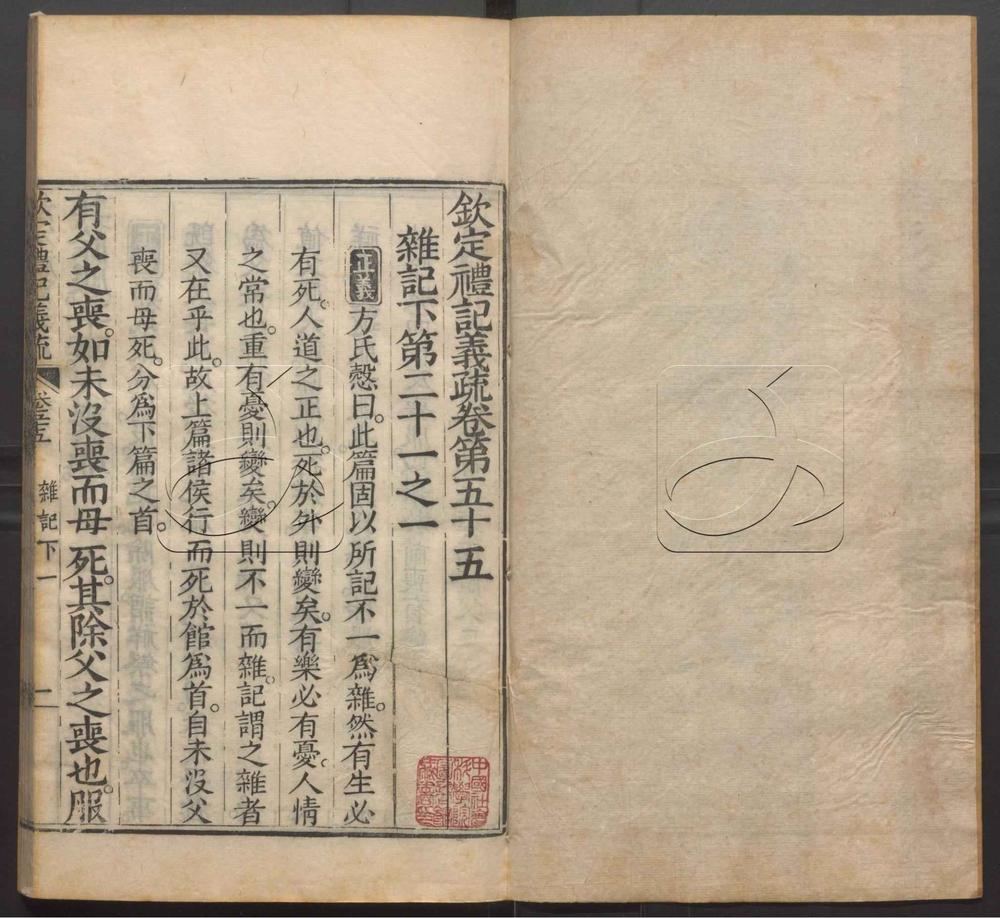 欽定禮記義疏卷第五十五
雜記下第二十一之一
正義方氏慤曰。此篇固以所記不一爲雜。然有生必
有死。人道之正也。死於外則變矣。有樂必有憂。人情
之常也。重有憂則變矣。變則不一而雜。記謂之雜者
又在乎此。故上篇諸侯行而死於館爲首。自未沒父
喪而母死。分爲下篇之首。
有父之喪。如未沒喪而母死。其除父之喪也。服
欽定禮記義疏 卷五十五 雜記下一 二